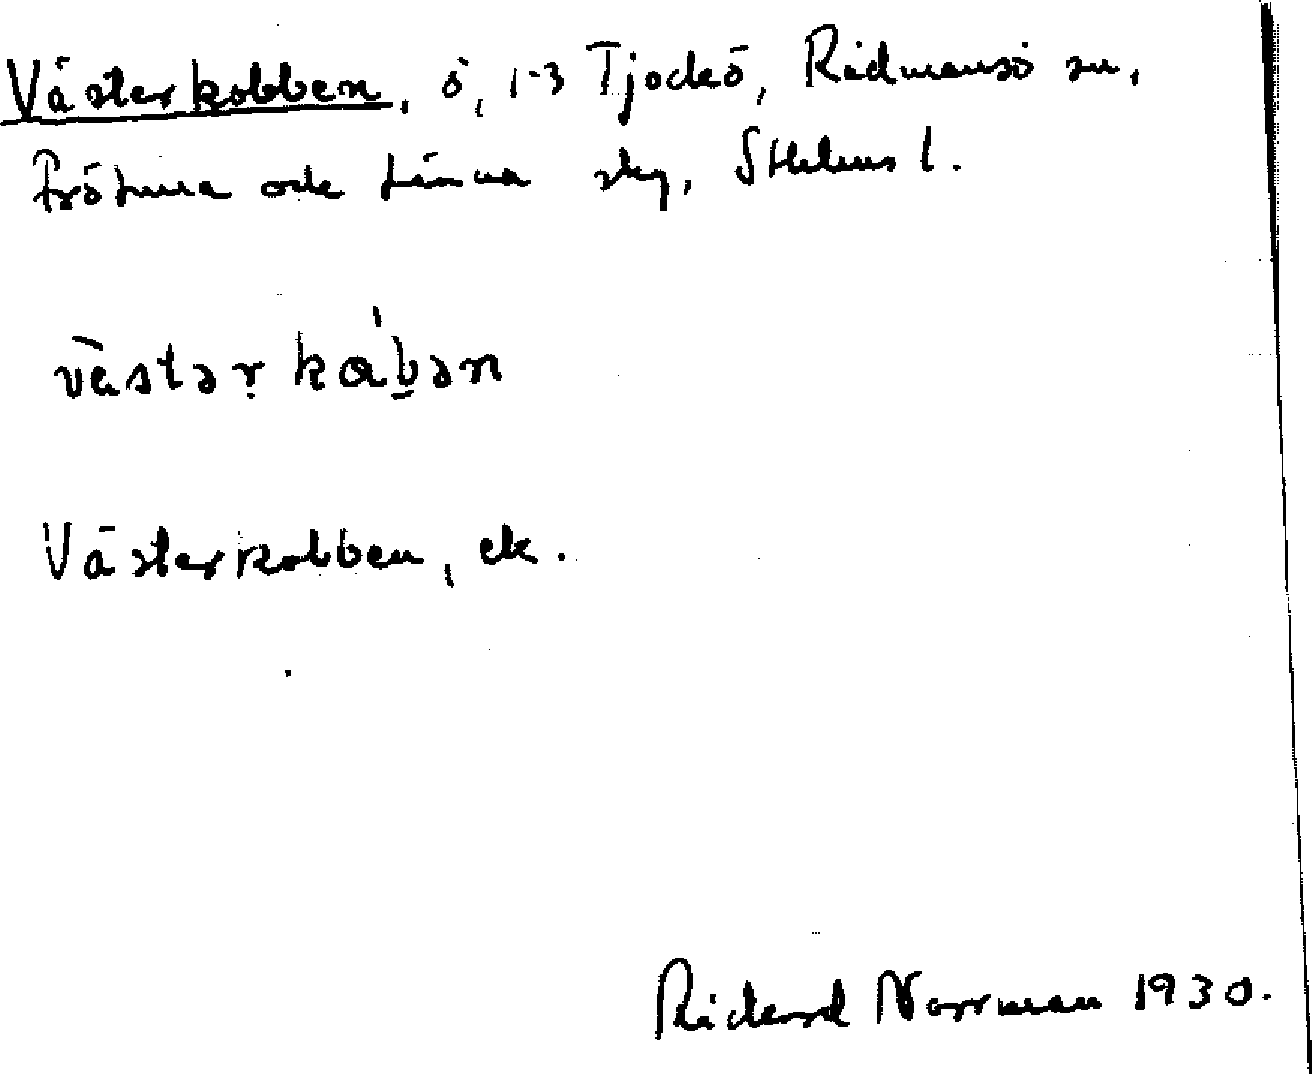 Västerkobben, ö, 1-3 Tjockö, Rådmansö sn,
Frötuna och Länna skg, Sthlms l.
vä̀stər kɑ́ḇən
Västerkobben, ek.
Rickard Norrman 1930.